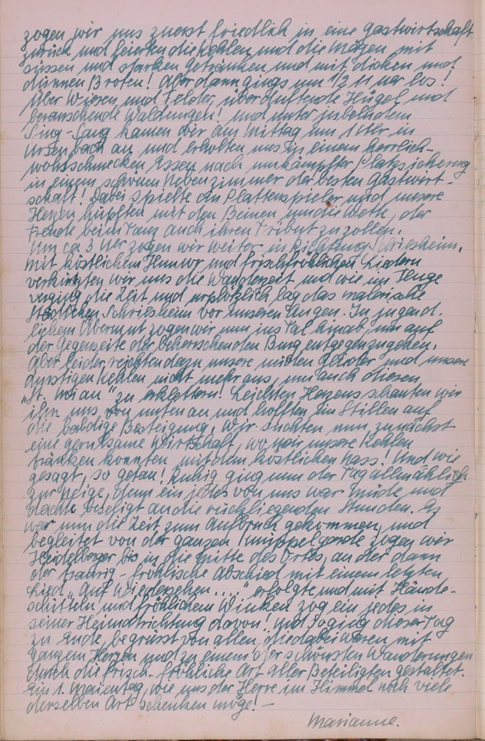 zogen wir uns zuerst friedlich in eine Gastwirtschaft
zurück und feierten die Kehlen und die Mägen mit
süssen und starken Getränken und mit dicken und
dünnen Broten! Aber dann gings um 1/2 11 Uer los!
Über Wiesen und Felder, überduftende Hügel und
berauschende Waldungen! und unter jubelndem
Sing-Sang kamen wir am Mittag um 1 Uer in
Ursenbach an und erholten uns zu einem herrlich-
wohlschmecken Essen nach umkämpfter Platzsicherung
in einem schönen Nebenzimmer der besten Gastwirt-
schaft! Dabei spielte der Plattenspieler und unsere
Herzen hüpften mit den Beinen um die Wette, der
Freude beim Tanz auch ihren Tribut zu zollen.
Um ca 3 Uer zogen wir weiter in Richtung Schriesheim.
Mit köstlichem Humor und frischfröhlichen Liedern
verkürzten wir uns die Wanderzeit und wie im Fluge
verging die Zeit und urplötzlich lag das malerische
Städtchen Schriesheim vor unseren Augen. In jugend-
lichem Übermut zogen wir nun ins Tal hinab, um auf
der Gegenseite der beherrschenden Burg entgegenzugehen.
Aber leider reichten dazu unsere müden Glieder und unsere
durstigen Kehlen nicht mehr aus, um auch diesen
zu erklettern! Leichten Herzens schauten wir
ihn uns von unten an und hofften im Stillen auf
die baldige Besteigung. Wir suchten nun zunächst
eine geruhsame Wirtschaft, wo wir unsere Kehlen
tränken konnten mit dem köstlichen Nass! Und wie
gesagt, so getan! Ruhig ging nun der Tag allmählich
zur Neige, denn ein jedes von uns war müde und
dachte beseligt an die rückliegenden Stunden. Es
war nun die Zeit zum Aufbruch gekommen, und
begleitet von der ganzen Knüppelgarde zogen wir
Heidelberger bis in die Mitte des Ortes, an der dann
der traurig-fröhlische Abschied mit einem letzten
Lied „Auf Wiedersehen...." erfolgte und mit Hände-
schütteln und fröhlichem Winken zog ein jedes in
seiner Heimatrichtung davon! Und so ging dieser Tag
zu Ende, begrüsst von allen die dabei waren mit
ganzem Herzen und zu einem der schönsten Wanderungen
durch die frisch-fröhliche Art aller Beteiligten gestaltet.
Ein 1. Maientag, wie uns der Herre im Himmel noch viele
derselben Art schenken möge! —
Marianne.